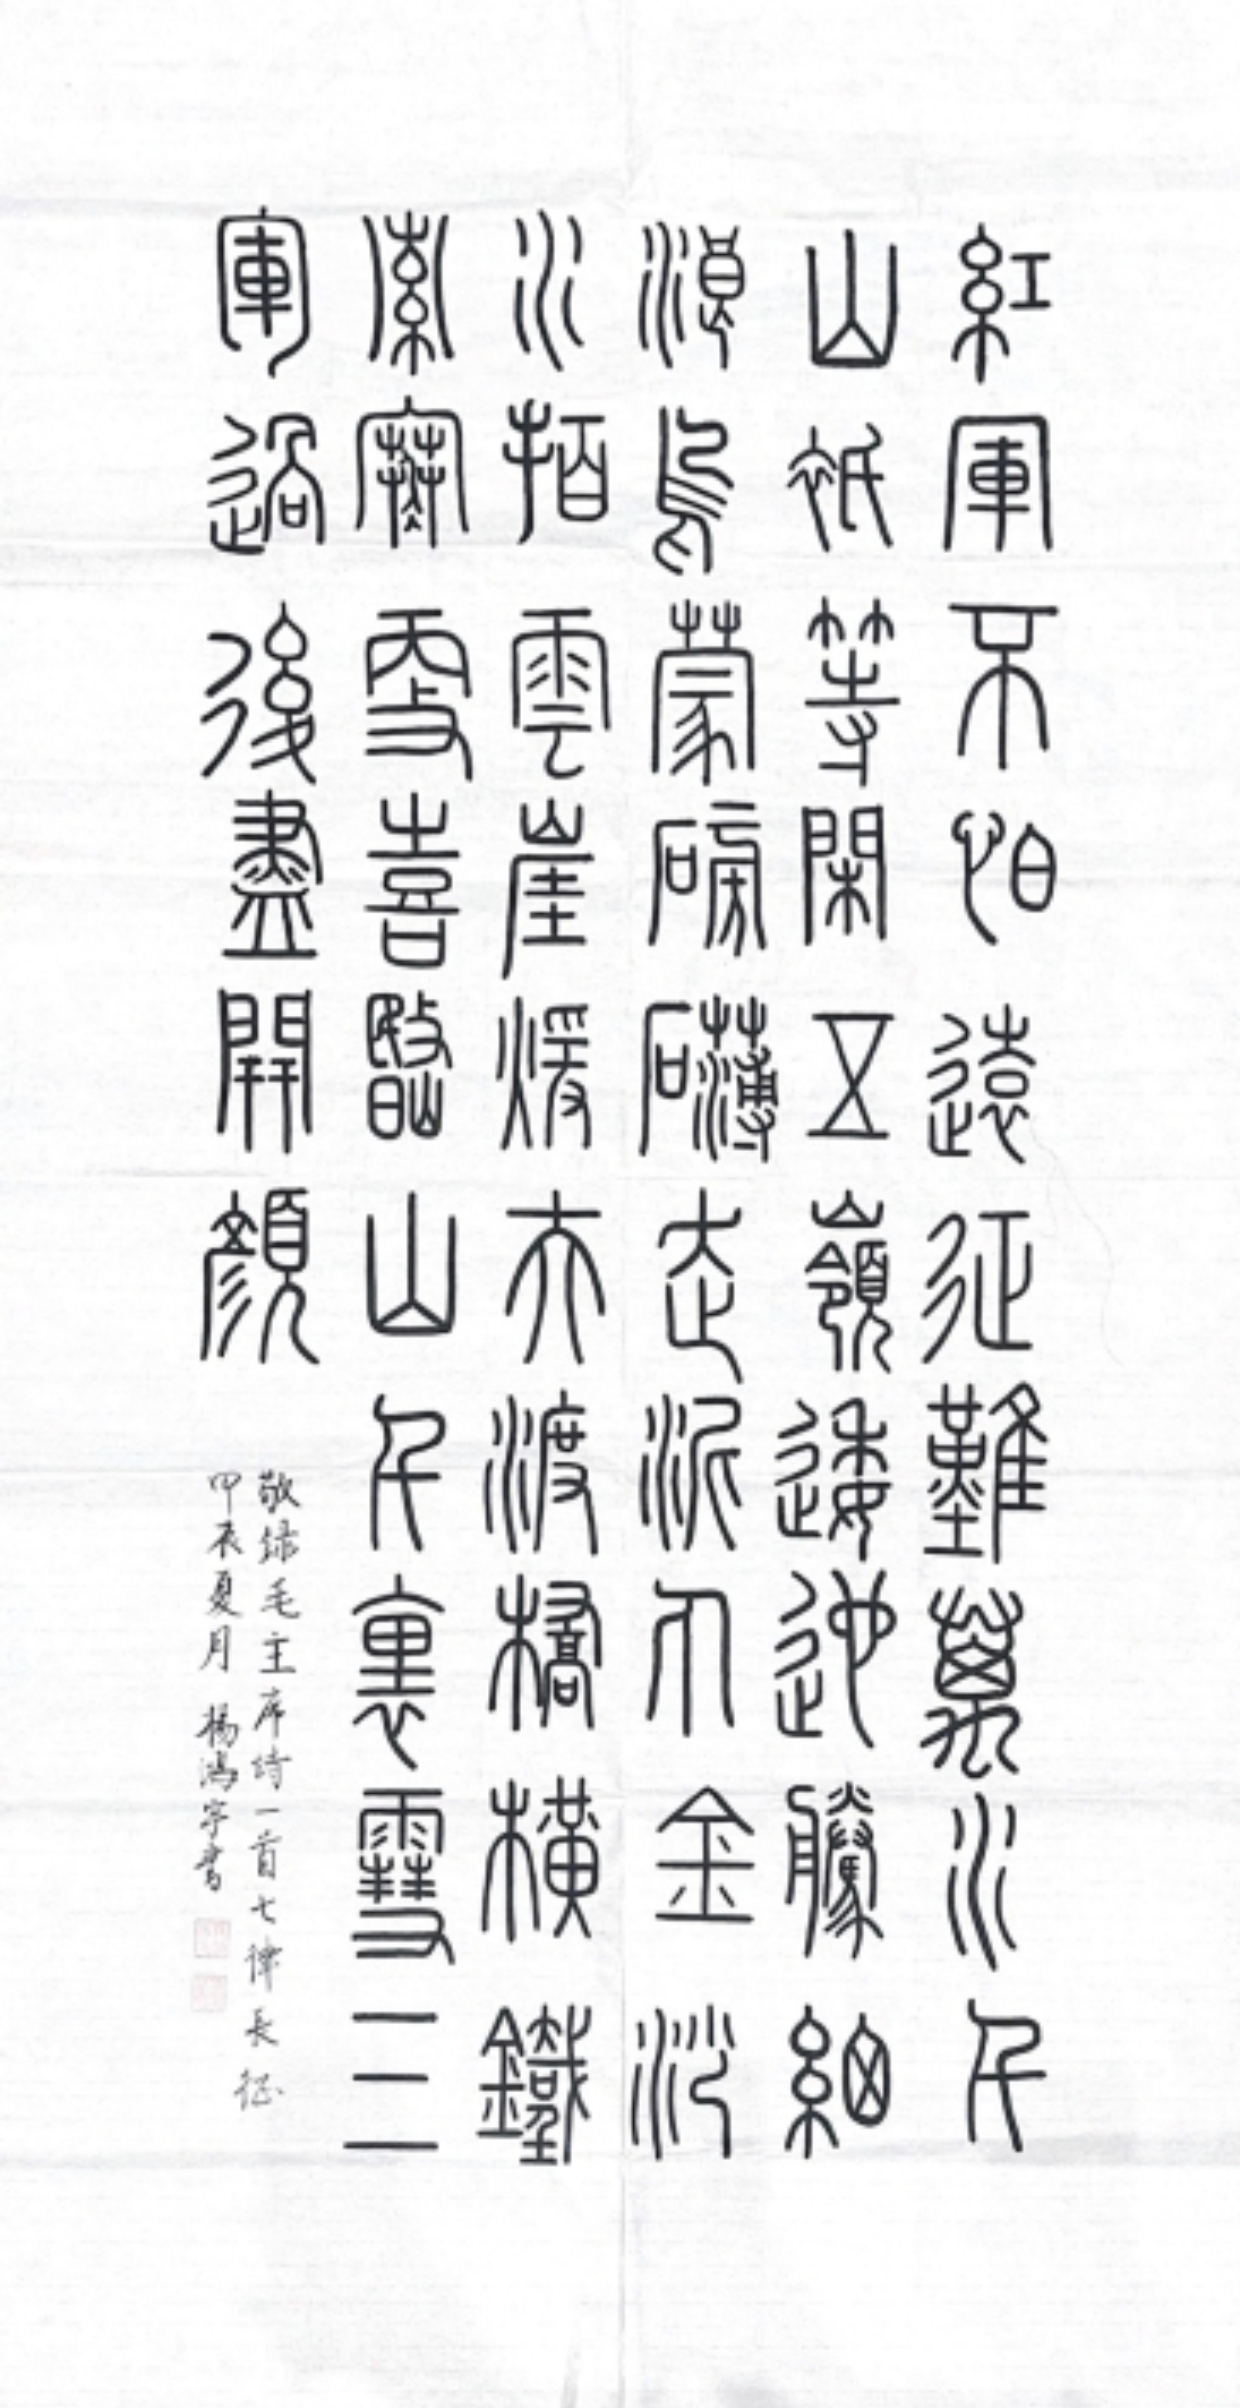 紅軍不怕遠征難萬水千
山衹等閑五嶺逶迤騰細
浪烏蒙磅礴走泥丸金沙
水拍雲崖煖大渡橋橫鐵
索寒更喜岷山千裏雪三
軍過後盡開顏
敬録毛主席诗一首七律長征
甲辰夏月 楊鴻宇書